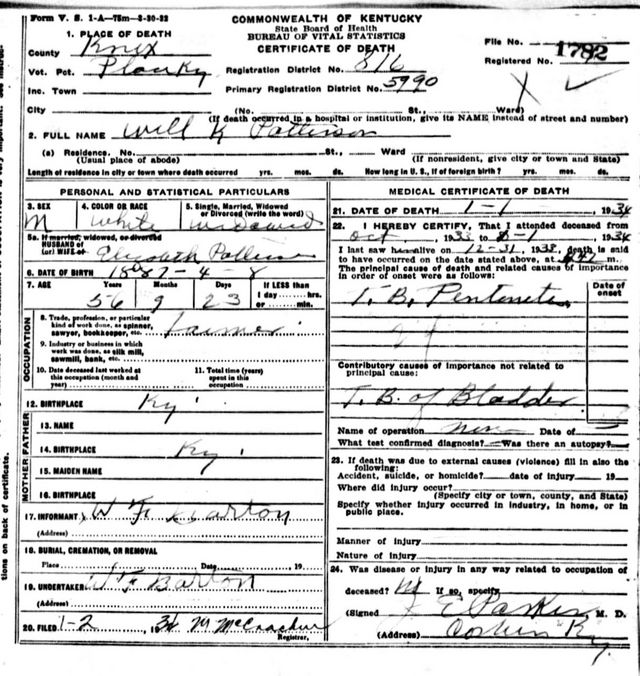 Form V. S. 1-A—75m—8-30-32
COMMONWEALTH OF KENTUCKY
State Board of Health
BUREAU OF VITAL STATISTICS
CERTIFICATE OF DEATH
File No.
1782
Registered No.
1. PLACE OF DEATH
County Knox
Vot. Pct.
Inc. Town
City
Registration District No. 816
Primary Registration District No. 5990
(No. St., Ward)
(If death occurred in a hospital or institution, give its NAME instead of street and number)
2. FULL NAME Will K Patterson
(a) Residence. No. St., Ward
(Usual place of abode) (If nonresident, give city or town and State)
Length of residence in city or town where death occurred yrs. mos. ds. How long in U. S., if of foreign birth? yrs. mos. ds.
PERSONAL AND STATISTICAL PARTICULARS
3. SEX M
4. COLOR OR RACE White
5. Single, Married, Widowed or Divorced (write the word) Widowed
5a. If married, widowed, or divorced
HUSBAND of
(or) WIFE of Elizabeth
6. DATE OF BIRTH
7. AGE 56 Years 9 Months 23 Days
If LESS than
1 day hrs.
or min.
OCCUPATION
8. Trade, profession, or particular kind of work done, as spinner, sawyer, bookkeeper, etc. Farmer
9. Industry or business in which work was done, as silk mill, sawmill, bank, etc.
10. Date deceased last worked at this occupation (month and year)
11. Total time (years) spent in this occupation
12. BIRTHPLACE Ky.
FATHER
13. NAME
14. BIRTHPLACE Ky.
MOTHER
15. MAIDEN NAME
16. BIRTHPLACE
17. INFORMANT W F Barton
(Address)
18. BURIAL, CREMATION, OR REMOVAL
Place Date 19
19. UNDERTAKER W F Barton
(Address)
20. FILED 1-2 1934 M McCracken
Registrar.
MEDICAL CERTIFICATE OF DEATH
21. DATE OF DEATH 1-1 1934
22. I HEREBY CERTIFY, That I attended deceased from
Oct 1933 to 1 1934
I last saw him alive on 12-31, death is said
to have occurred on the date stated above, at m.
The principal cause of death and related causes of importance
in order of onset were as follows:
Date of onset
T. B.
Contributory causes of importance not related to
principal cause:
T. B. of Bladder
Name of operation Date of
What test confirmed diagnosis? Was there an autopsy?
23. If death was due to external causes (violence) fill in also the
following:
Accident, suicide, or homicide? date of injury 19
Where did injury occur?
(Specify city or town, county, and State)
Specify whether injury occurred in industry, in home, or in
public place.
Manner of injury
Nature of injury
24. Was disease or injury in any way related to occupation of
deceased? If so, specify
(Signed) E Parker M. D.
(Address) Corbin Ky.
tions on back of certificate.